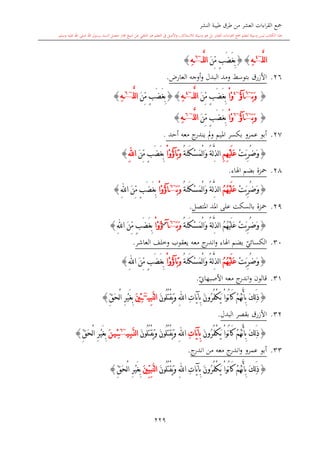 جمع القراءات العشر من طرق طيبة النشر
﴿بِغَضَبٍ مِّنَ اللَّهِ﴾
٢٦. الأزرق بتوسط ومد البدل وأوجه العارض.
﴿وَبَآءُو بِغَضَبٍ مِّنَ اللَّهِ﴾ ﴿وَبَآءُو بِغَضَبٍ مِّنَ اللَّهِ﴾
﴿وَبَآءُو بِغَضَبٍ مِّنَ اللَّهِ﴾
٢٧. أبو عمرو بكسر الميم ولم يندرج معه أحد.
﴿وَضُرِبَتْ عَلَيْهِمِ الذِّلَّةُ وَالْمَسْكَنَةُ وَبَآءُو بِغَضَبٍ مِّنَ اللَّهِ﴾
٢٨. حمزة بضم الهاء.
﴿وَضُرِبَتْ عَلَيْهُمُ الذِّلَّةُ وَالْمَسْكَنَةُ وَبَآءُو بِغَضَبٍ مِّنَ اللَّهِ﴾
٢٩. حمزة بالسكت على المد المتصل.
﴿وَضُرِبَتْ عَلَيْهُمُ الذِّلَّةُ وَالْمَسْكَنَةُ وَبَآءُو بِغَضَبٍ مِّنَ اللَّهِ﴾
٣٠. الكسائيّ بضم الهاء واندرج معه يعقوب وخلف العاشر.
﴿وَضُرِبَتْ عَلَيْهُمُ الذِّلَّةُ وَالْمَسْكَنَةُ وَبَآءُو بِغَضَبٍ مِّنَ اللَّهِ﴾
٣١. قالون واندرج معه الأصبهانيّ.
﴿ذَلِكَ بِأَنَّهُمْ كَانُوا يَكْفُرُونَ بِآيَاتِ اللَّهِ وَيَقْتُلُونَ النَّبِيئِينَ بِغَيْرِ الْحَقِّ﴾
٣٢. الأزرق بقصر البدل.
﴿ذَلِكَ بِأَنَّهُمْ كَانُوا يَكْفُرُونَ بِآيَاتِ اللَّهِ وَيَقْتُلُونَ النَّبِيئِينَ بِغَيْرِ الْحَقِّ﴾
٣٣. أبو عمرو واندرج معه من اندرج.
﴿ذَلِكَ بِأَنَّهُمْ كَانُوا يَكْفُرُونَ بِآيَاتِ اللَّهِ وَيَقْتُلُونَ النَّبِيِّينَ بِغَيْرِ الْحَقِّ﴾
٢٢٩